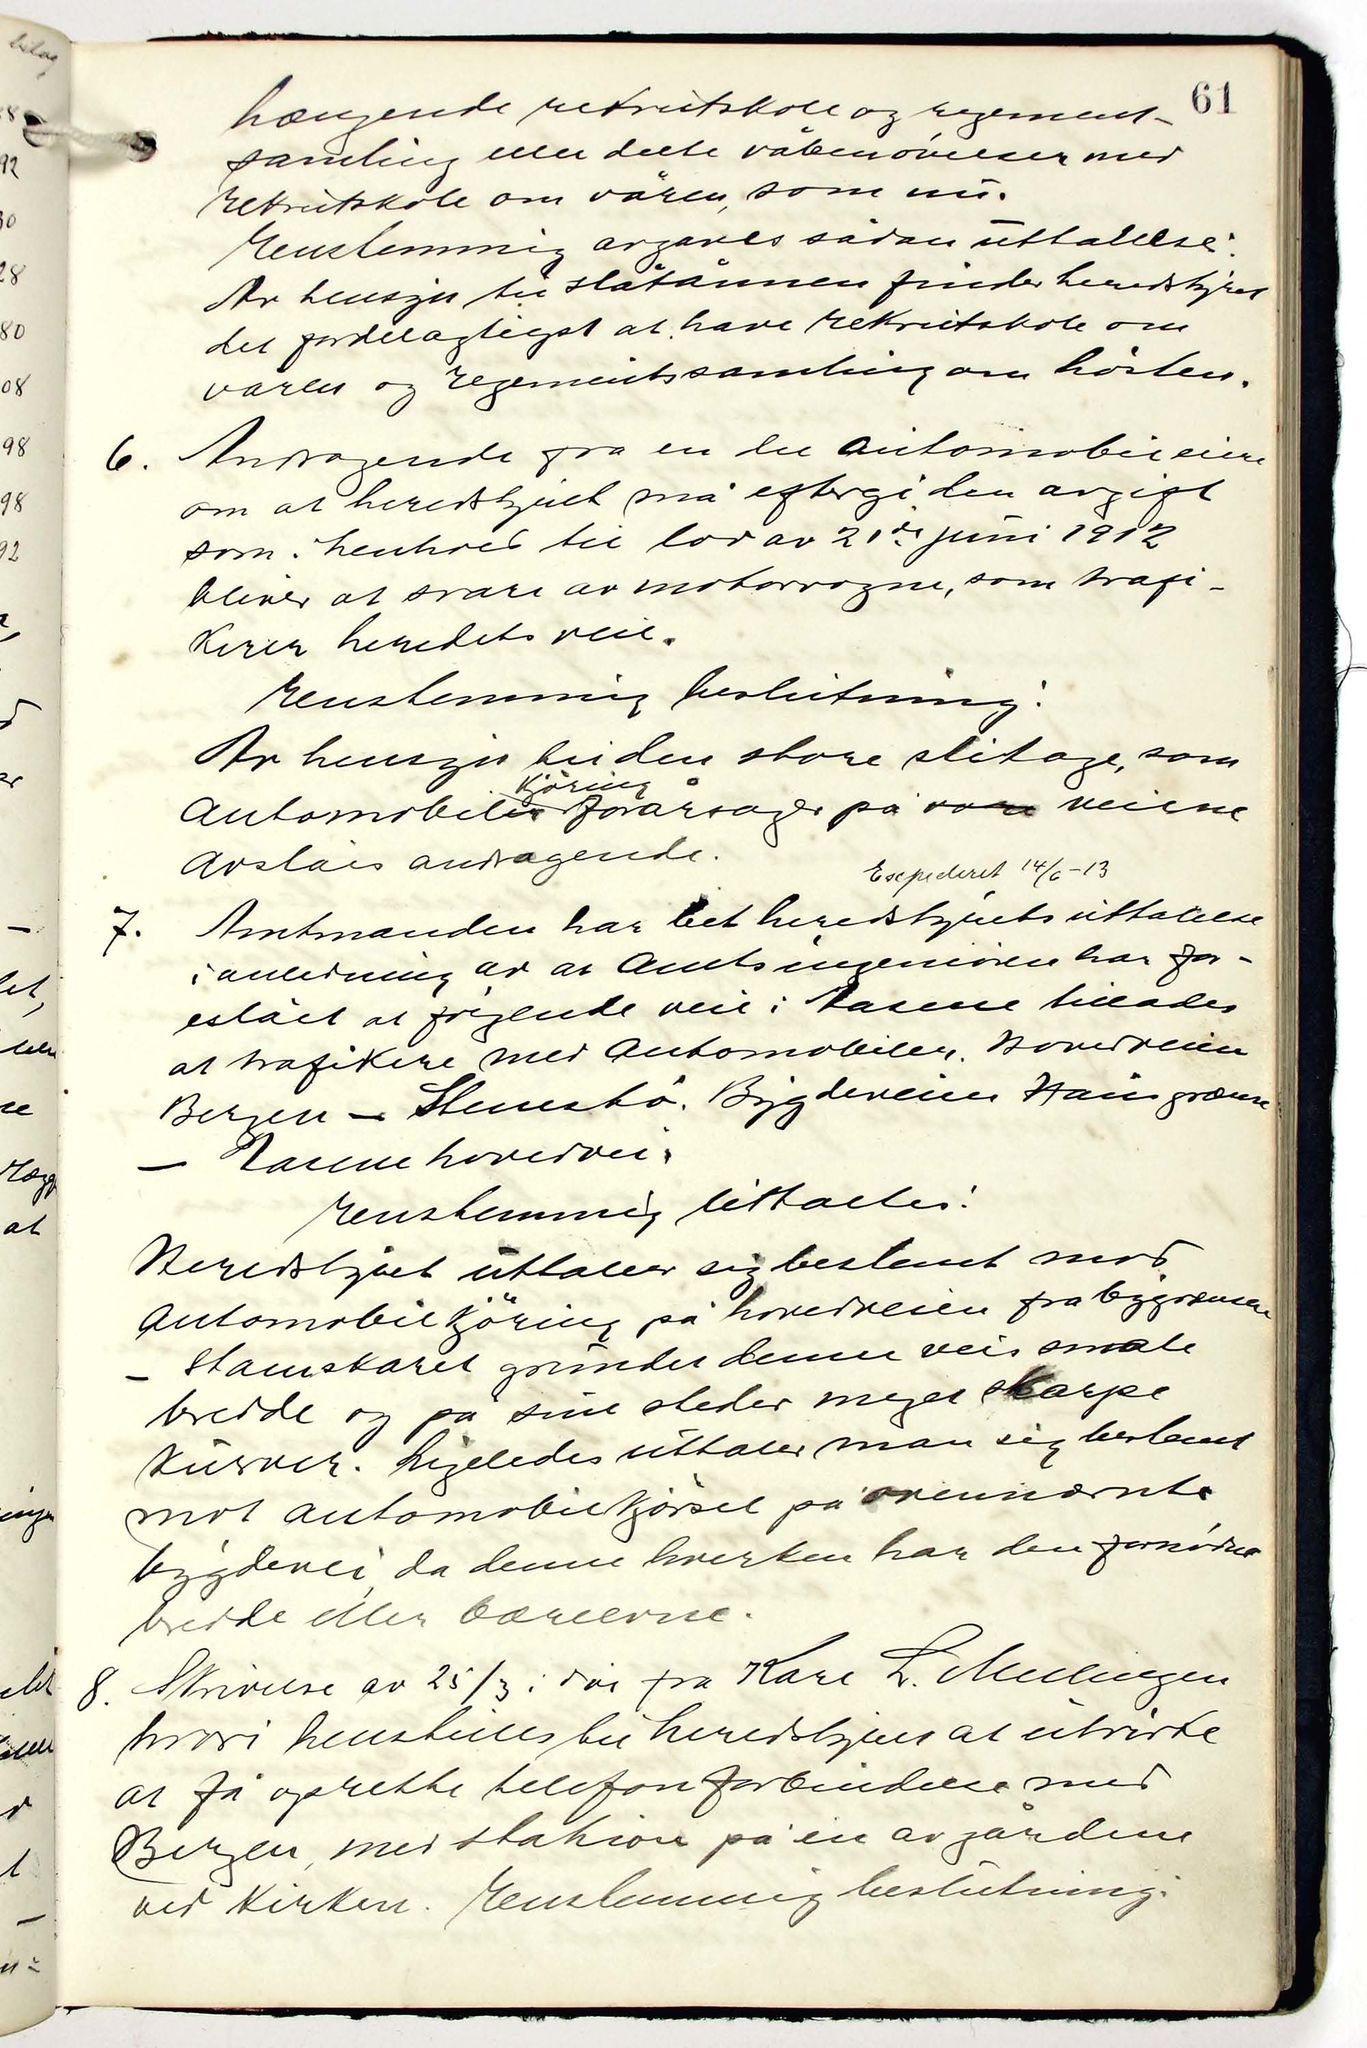 61
hængende rekrutskole og regement-
samling eller delte våbenøvelser med
rekrutskole om våren, som nu.
Enstemmig avgaves sådan uttalelse:
Av hensyn til slåtånnen finder heredstyret
det fordelagtigst at have rekrutskole om
våren og regementssamling om høsten.
6. Andragende fra en del automobileiere
om at heredstyret må eftergi den avgift
som i henhold til lov av 21de juni 1912
bliver at svare av motorvogne, som trafi-
kerer heredets veie.
Enstemmig beslutning:
Av hensyn til den store slitage, som
kjøring
automobil forårsager på veiene
avslåes andragende.
Expederet 14/6-13
7. Amtmanden har bet heredstyrets uttalelse
i anledning av at Amtsingeniøren har for-
eslået at følgende veie i Aasene tillades
at trafikere med Automobiler. Hovedveien
Bergen - Steinstø. Bygdeveien Haus grænse
- Aasene hovedvei.
Enstemmig uttaltes:
Heredstyret uttaler sig bestemt mod
Automobilkjøring på hovedveien fra bygrænsen
- Stamskaret grundet denne veis smale
bredde og på sine steder meget skarpe
kurver. Ligeledes uttaler man sig bestemt
mot automobilkjørsel på ovennævnte
bygdevei, da denne hverken har den fornødne
bredde eller bæreevne.
8. Skrivelse av 25/3 i år fra Karl L. Mellingen
hvori henstilles til heredstyret at utvirke
at få oprette telefonforbindelse med
Bergen, med station på en av gårdene
ved kirken. Enstemmig beslutning: